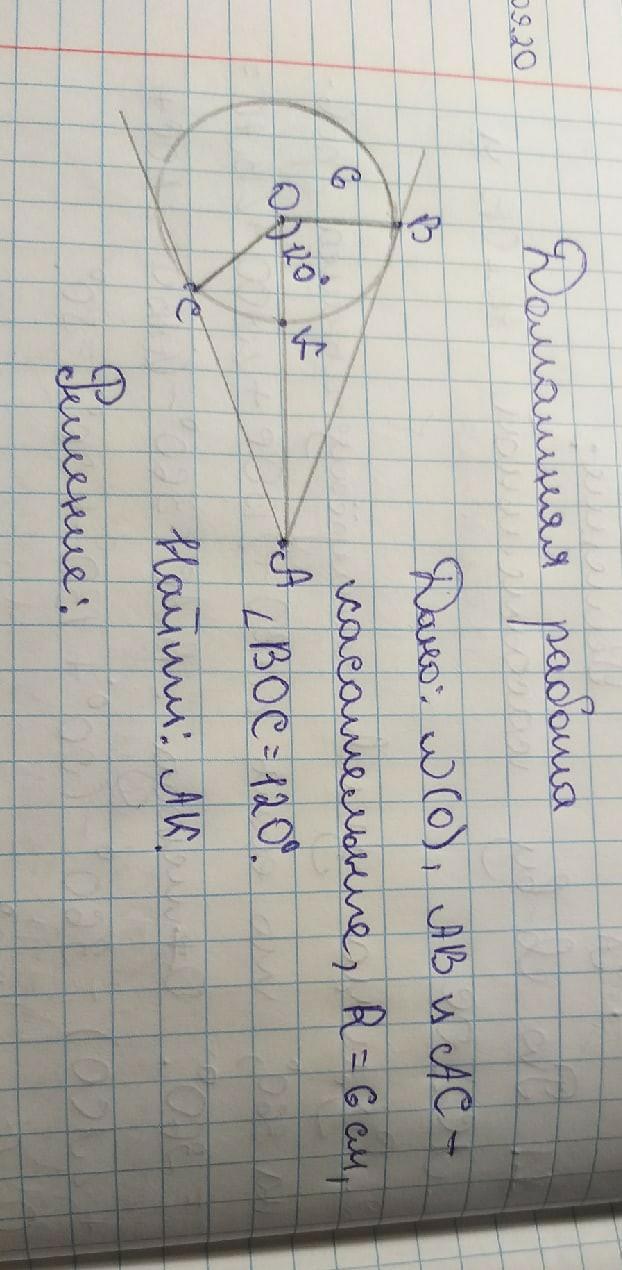 09.20
Домашняя работа
Дано: ω(O), AB и AC -
касательные, R = 6 см,
∠BOC = 120°.
Найти: AK.
Решение:
B
6
O
120°
K
A
C